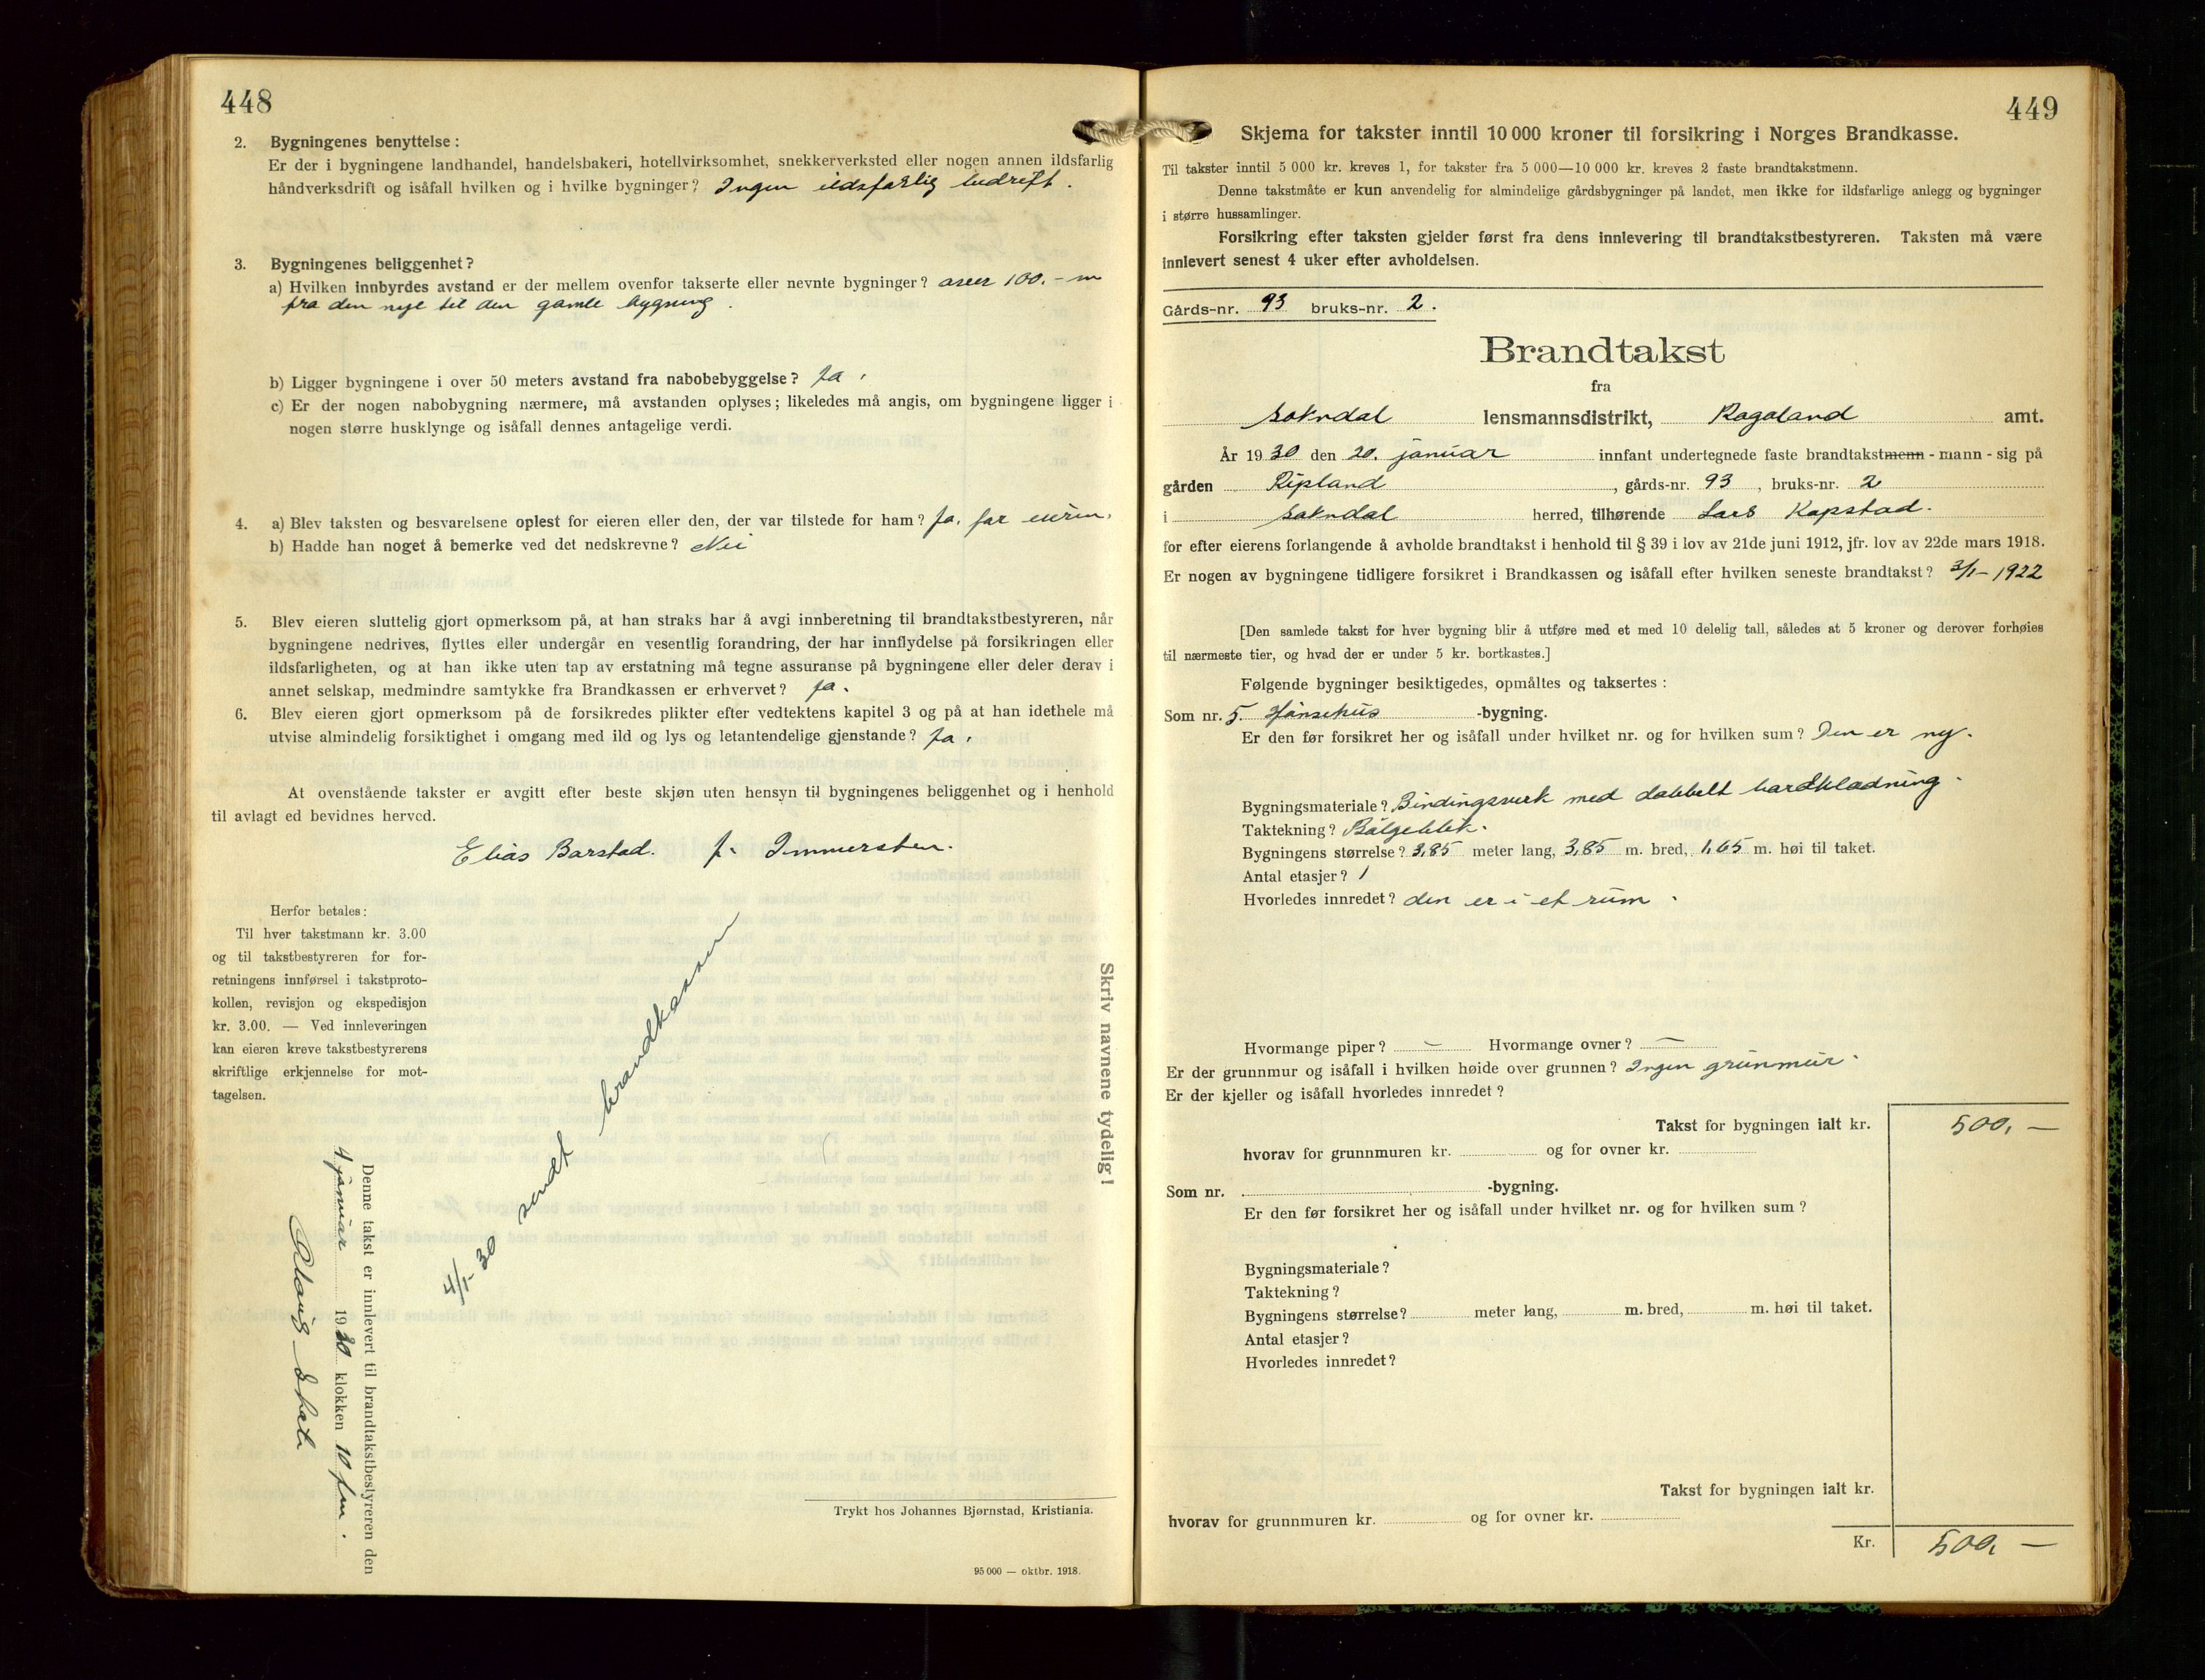 448
2. Bygningenes benyttelse:
Er der i bygningene landhandel, handelsbakeri, hotellvirksomhet, snekkerverksted eller nogen annen ildsfarlig
håndverksdrift og isåfall hvilken og i hvilke bygninger? Ingen ildsfarlig bedrift.
3. Bygningenes beliggenhet?
a) Hvilken innbyrdes avstand er der mellem ovenfor takserte eller nevnte bygninger? over 100.- m
fra den nye til den gamle bygning.
b) Ligger bygningene i over 50 meters avstand fra nabobebyggelse? Ja.
c) Er der nogen nabobygning nærmere, må avstanden oplyses; likeledes må angis, om bygningene ligger i
nogen større husklynge og isåfall dennes antagelige verdi.
4. a) Blev taksten og besvarelsene oplest for eieren eller den, der var tilstede for ham? Ja, for eieren.
b) Hadde han noget å bemerke ved det nedskrevne? Nei
5. Blev eieren sluttelig gjort opmerksom på, at han straks har å avgi innberetning til brandtakstbestyreren, når
bygningene nedrives, flyttes eller undergår en vesentlig forandring, der har innflydelse på forsikringen eller
ildsfarligheten, og at han ikke uten tap av erstatning må tegne assuranse på bygningene eller deler derav i
annet selskap, medmindre samtykke fra Brandkassen er erhvervet? Ja.
6. Blev eieren gjort opmerksom på de forsikredes plikter efter vedtektens kapitel 3 og på at han idethele må
utvise almindelig forsiktighet i omgang med ild og lys og letantendelige gjenstande? Ja.
At ovenstående takster er avgitt efter beste skjøn uten hensyn til bygningenes beliggenhet og i henhold
til avlagt ed bevidnes herved.
Elias Barstad. J. Immersten.
Herfor betales:
Til hver takstmann kr. 3.00
og til takstbestyreren for for-
retningens innførsel i takstproto-
kollen, revisjon og ekspedisjon
kr. 3.00. — Ved innleveringen
kan eieren kreve takstbestyrerens
skriftlige erkjennelse for mot-
tagelsen.
Skriv navnene tydelig!
sendt brandkassen
Denne takst er innlevert til brandtakstbestyreren den
4 januar 1930 klokken 10 fm.
Trykt hos Johannes Bjørnstad, Kristiania.
95 000 — oktbr. 1918.
449
Skjema for takster inntil 10 000 kroner til forsikring i Norges Brandkasse.
Til takster inntil 5 000 kr. kreves 1, for takster fra 5 000—10 000 kr. kreves 2 faste brandtakstmenn.
Denne takstmåte er kun anvendelig for almindelige gårdsbygninger på landet, men ikke for ildsfarlige anlegg og bygninger
i større hussamlinger.
Forsikring efter taksten gjelder først fra dens innlevering til brandtakstbestyreren. Taksten må være
innlevert senest 4 uker efter avholdelsen.
Gårds-nr. 93 bruks-nr. 2.
Brandtakst
fra
Sokndal lensmannsdistrikt, Rogaland amt.
År 1930 den 20. januar innfant undertegnede faste brandtakstmenn - mann - sig på
gården Ripland, gårds-nr. 93, bruks-nr. 2
i Sokndal herred, tilhørende Lars Kapstad.
for efter eierens forlangende å avholde brandtakst i henhold til § 39 i lov av 21de juni 1912, jfr. lov av 22de mars 1918.
Er nogen av bygningene tidligere forsikret i Brandkassen og isåfall efter hvilken seneste brandtakst? 3/1-1922
[Den samlede takst for hver bygning blir å utføre med et med 10 delelig tall, således at 5 kroner og derover forhøies
til nærmeste tier, og hvad der er under 5 kr. bortkastes.]
Følgende bygninger besiktigedes, opmåltes og taksertes:
Som nr. 5. Hønsehus -bygning.
Er den før forsikret her og isåfall under hvilket nr. og for hvilken sum? Den er ny.
Bygningsmateriale? Bindingsverk med dobbelt bordkledning.
Taktekning? Bølgeblik.
Bygningens størrelse? 3,85 meter lang, 3,85 m. bred, 1,65 m. høi til taket.
Antal etasjer? 1
Hvorledes innredet? den er i et rum.
Hvormange piper? — Hvormange ovner? —
Er der grunnmur og isåfall i hvilken høide over grunnen? Ingen grunmur.
Er der kjeller og isåfall hvorledes innredet?
Takst for bygningen ialt kr. 500,—
hvorav for grunnmuren kr. og for ovner kr.
Som nr. -bygning.
Er den før forsikret her og isåfall under hvilket nr. og for hvilken sum?
Bygningsmateriale?
Taktekning?
Bygningens størrelse? meter lang, m. bred, m. høi til taket.
Antal etasjer?
Hvorledes innredet?
Takst for bygningen ialt kr.
hvorav for grunnmuren kr. og for ovner kr.
Kr. 500,—